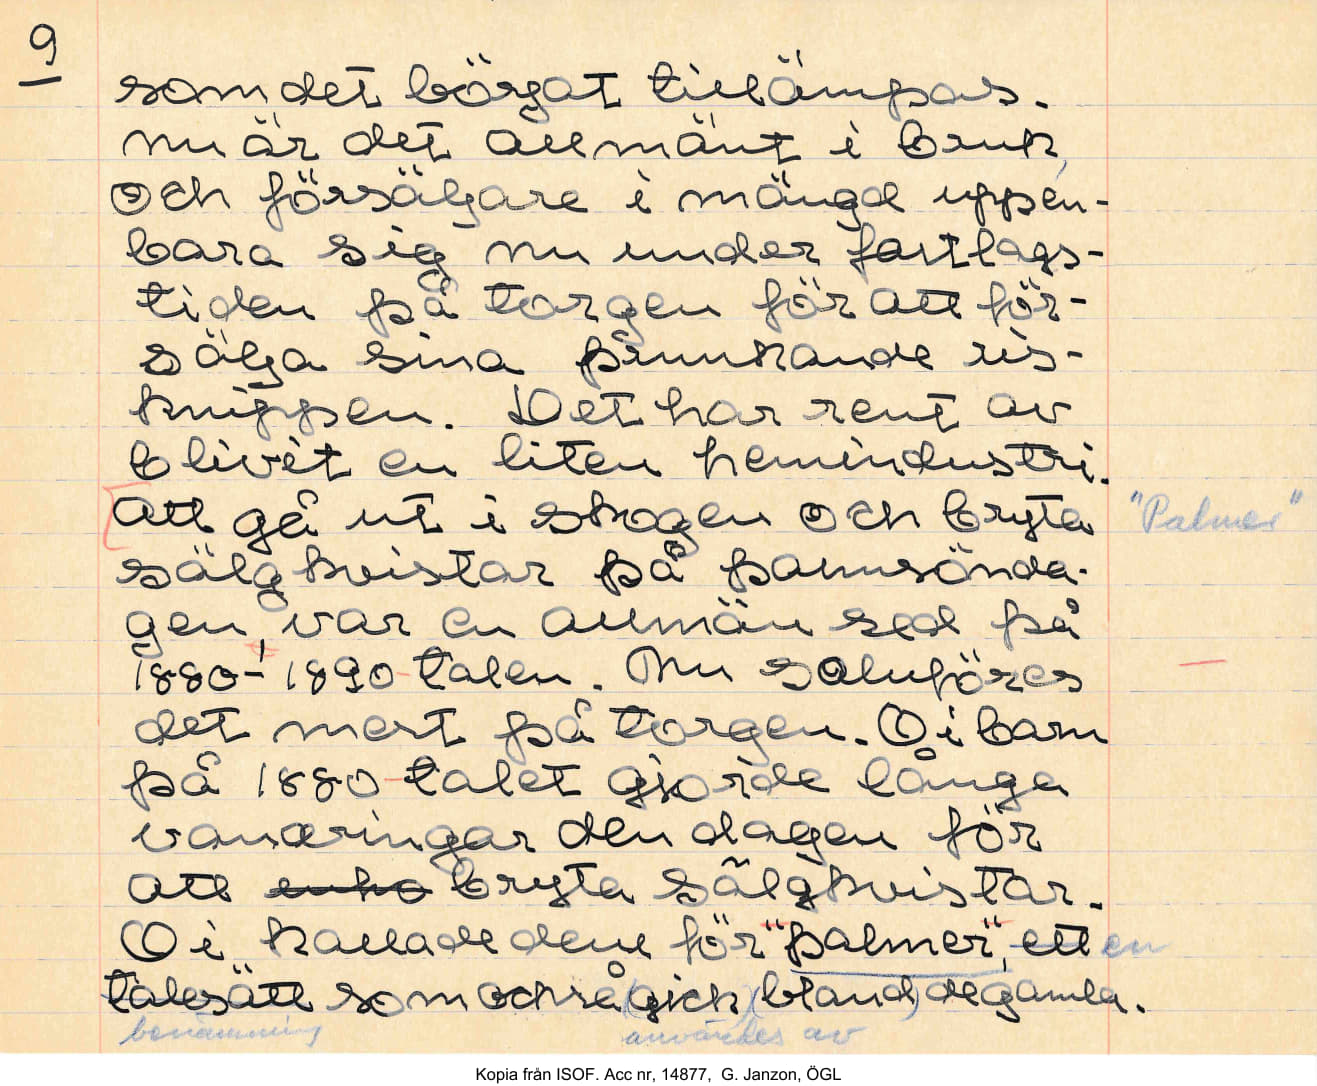 9
som det börgat tillämpas.
nu är det allmänt i bruk,
och försäljare i mängd uppen-
bara sig nu under fastlags-
tiden på torgen för att för-
sälja sina prunkande ris-
knippen. Det har rent av
blivit en liten hemindustri.
Att gå ut i skogen och bryta "Palmer"
sälgkvistar på palmsönda-
gen, var en allmän sed på
1880-1890-talen. Nu saluföres
det mest på torgen. Vi barn
på 1880-talet gjorde långa
vandringar den dagen för
att bryta sälgkvistar.
Vi kallade dem för "palmer", ett en
talesätt som också (gick) (bland) de gamla.
benämning användes av
Kopia från ISOF. Acc nr, 14877, G. Janzon, ÖGL